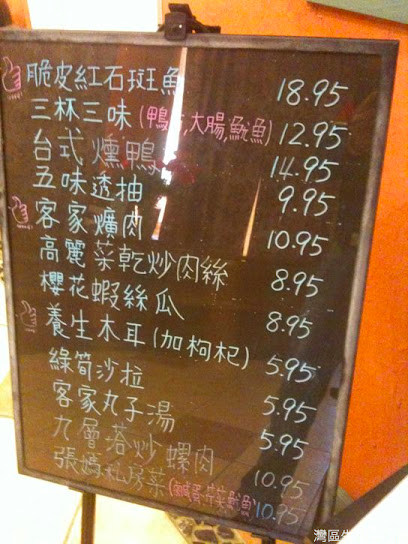 脆皮紅石斑魚 18.95
三杯三味(鴨,大腸,魷魚) 12.95
台式燻鴨 14.95
五味透抽 9.95
客家爌肉 10.95
高麗菜乾炒肉絲 8.95
櫻花蝦絲瓜 8.95
養生木耳(加枸杞) 5.95
綠筍沙拉 5.95
客家丸子湯 5.95
九層塔炒螺肉 10.95
張媽私房菜(鹹蛋芥菜魷魚) 10.95
灣區生